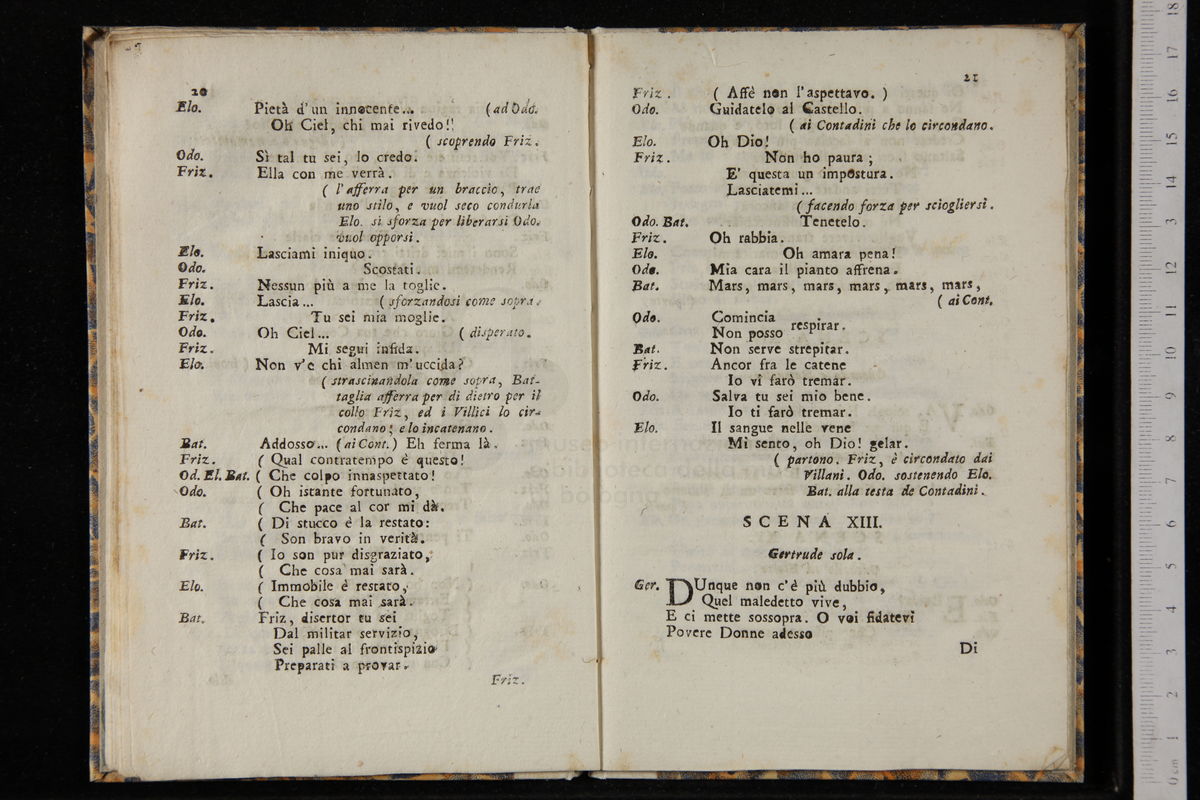 20
Elo. Pietà d'un innocente... (ad Odo.
Oh Ciel, chi mai rivedo!!
( scoprendo Friz.
Odo. Sì tal tu sei, lo credo.
Friz. Ella con me verrà.
( l'afferra per un braccio, trae
uno stilo, e vuol seco condurla
Elo. si sforza per liberarsi Odo.
vuol opporsi.
Elo. Lasciami iniquo.
Odo. Scostati.
Friz. Nessun più a me la toglie.
Elo. Lascia... ( sforzandosi come sopra.
Friz. Tu sei mia moglie.
Odo. Oh Ciel... ( disperato.
Friz. Mi segui infida.
Elo. Non v'è chi almen m'uccida?
( strascinandola come sopra, Bat-
taglia afferra per di dietro per il
collo Friz, ed i Villici lo cir-
condano; e lo incatenano.
Bat. Addosso... (ai Cont.) Eh ferma là.
Friz. ( Qual contratempo è questo!
Od. El. Bat. ( Che colpo innaspettato!
Odo. ( Oh istante fortunato,
( Che pace al cor mi dà.
Bat. ( Di stucco è la restato:
( Son bravo in verità.
Friz. ( Io son pur disgraziato,
( Che cosa mai sarà.
Elo. ( Immobile è restato,
( Che cosa mai sarà.
Bat. Friz, disertor tu sei
Dal militar servizio,
Sei palle al frontispizio
Preparati a provar.
Friz.
21
Friz. ( Affè non l'aspettavo. )
Odo. Guidatelo al Castello.
( ai Contadini che lo circondano.
Elo. Oh Dio!
Friz. Non ho paura;
E' questa un impostura.
Lasciatemi...
( facendo forza per sciogliersi.
Odo. Bat. Tenetelo.
Friz. Oh rabbia.
Elo. Oh amara pena!
Odo. Mia cara il pianto affrena.
Bat. Mars, mars, mars, mars, mars, mars,
( ai Cont.
Odo. Comincia
Non posso respirar.
Bat. Non serve strepitar.
Friz. Ancor fra le catene
Io vi farò tremar.
Odo. Salva tu sei mio bene.
Io ti farò tremar.
Elo. Il sangue nelle vene
Mi sento, oh Dio! gelar.
( partono. Friz, è circondato dai
Villani. Odo. sostenendo Elo.
Bat. alla testa de Contadini.
SCENA XIII.
Gertrude sola.
Ger. DUnque non c'è più dubbio,
Quel maledetto vive,
E ci mette sossopra. O voi fidatevi
Povere Donne adesso
Di